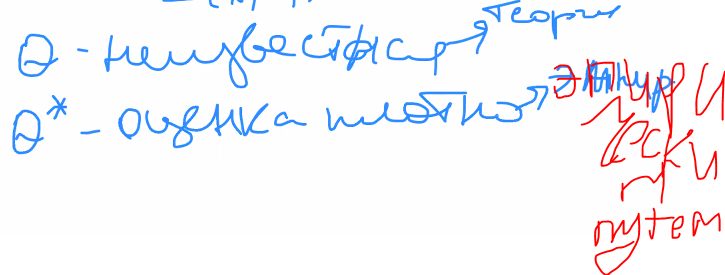 θ - неизвестная → теория
θ* - оценка плотно → эмпир
эмпири
чески
м
путем